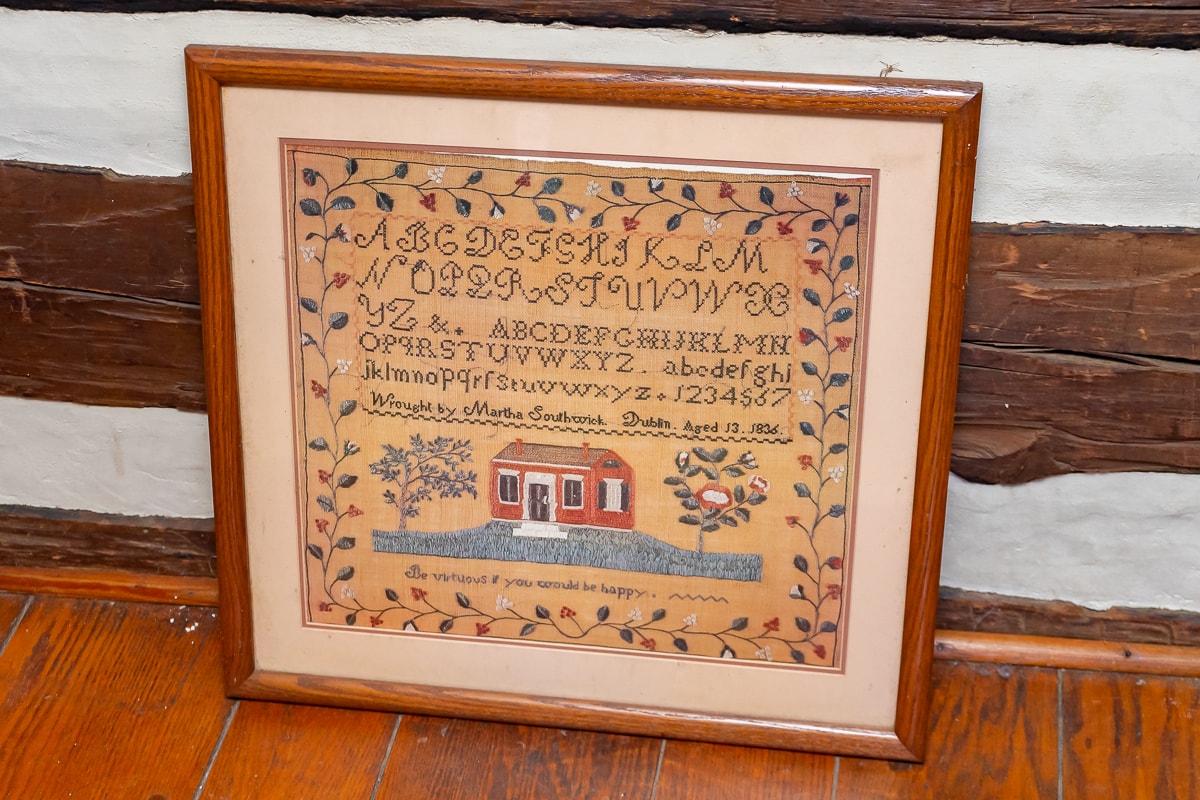 A B C D E F G H I K L M
N O P Q R S T U V W X
Y Z &. ABCDEFGHIJKLMN
OPQRSTUVWXYZ. abcdefghi
jklmnopqrſstuvwxyz. 1234567
Wrought by Martha Southwick. Dublin. Aged 13. 1836.
Be virtuous if you would be happy.